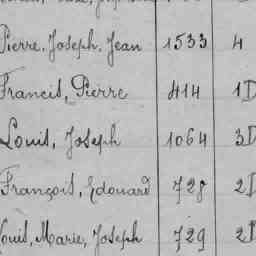 Pierre, Joseph, Jean 1533 4
Francis, Pierre 414 1D
Louis, Joseph 1064 3D
François, Edouard 728 2D
Louis, Marie, Joseph 729 2D